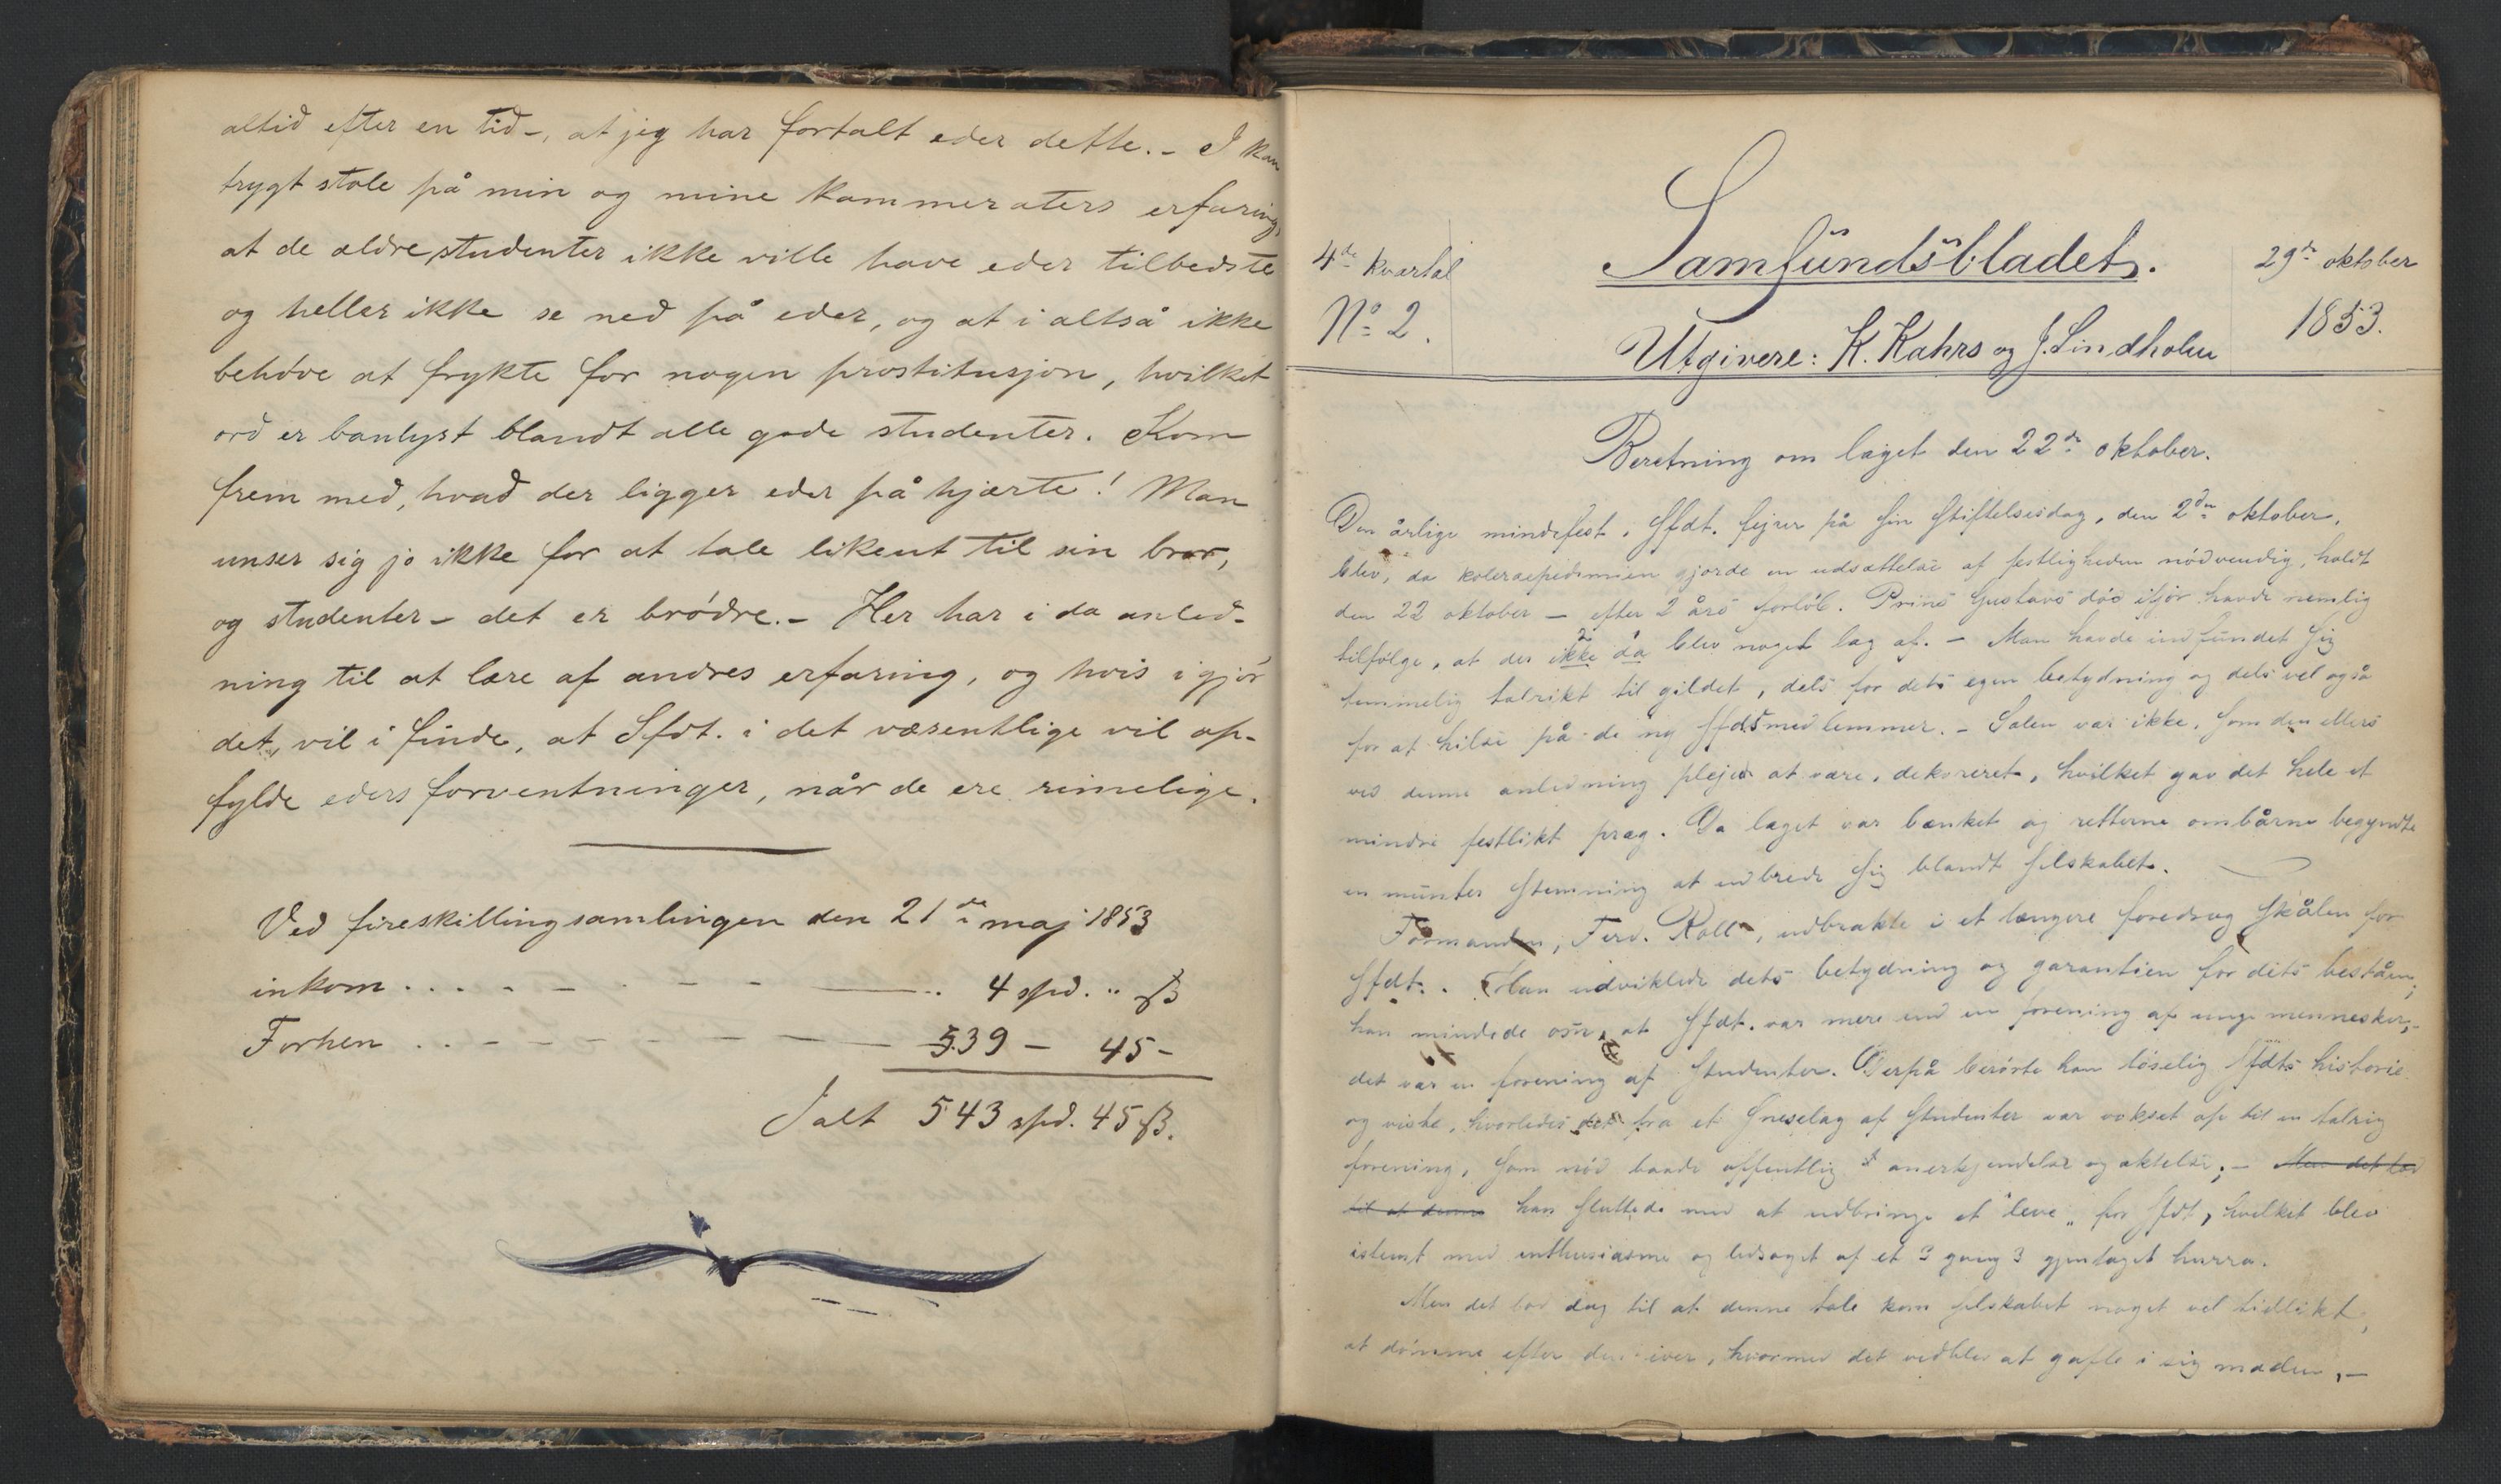 altid efter en tid-, at jeg har fortalt eder dette. - I kan
trygt stole på min og mine kammeraters erfaring,
at de ældre studenter ikke ville have eder tilbedste
og heller ikke se ned på eder, og at i altså ikke
behøve at frykte for nogen prostitusjon, hvilket
ord er banlyst blandt alle gode studenter. Kom
frem med, hvad der ligger eder på hjærte! Man
unser sig jo ikke for at tale likeut til sin bror,
og studenter - det er brødre. - Her har i da anled-
ning til at lære af andres erfaring, og hvis i gjør
det, vil i finde, at Sfdt. i det væsentlige vil op-
fylde eders forventninger, når de ere rimelige.
Ved fireskillingsamlingen den 21de maj 1853
inkom . . . . - - - - - . 4 spd. " ß
Forhen . . - - - - - - 539 - 45 -
Ialt 543 spd. 45 ß.
4de kvartal
No 2.
Samfundsbladet.
Utgivere: K. Kahrs og J. Lindholm
29de oktober
1853.
Beretning om laget den 22de oktober.
Den årlige mindefest, Sfdt. fejrer på sin Stiftelsesdag, den 2den oktober,
blev, da koleraepidemien gjorde en udsættelse af festligheden nødvendig, holdt
den 22 oktober - efter 2 års forløb. Prins Gustavs død ifjor havde nemlig
tilfølge, at der ikke da blev noget lag af. - Man havde indfundet sig
temmelig talrikt til gildet, dels for dets egen betydning og dels vel også
for at hilse på de ny Sfdsmedlemmer. - Salen var ikke, som den ellers
ved denne anledning plejer at være, dekoreret, hvilket gav det hele et
mindre festlikt præg. Da laget var bænket og retterne ombårne begyndte
en munter stemning at udbrede sig blandt selskabet.
Formanden, Ferd. Roll, udbrakte i et længere foredrag skålen for
Sfdt.. Han udviklede dets betydning og garantien for dets beståen;
han mindede om, at Sfdt. var mere end en forening af unge mennesker,-
det var en forening af Studenter. Derpå berørte han løselig Sfdts historie
og viste, hvorledes det fra et Gneselag af Studenter var vokset op til en talrig
forening, som nød baade offentlig anerkjendelse og aktelse; - Men det lod
til at denne han sluttede med at udbringe et "leve" for Sfdt, hvilket blev
istemt med enthusiasme og ledsaget af et 3 gang 3 gjentaget hurra.
Men det lod dog til at denne tale kom selskabet noget vel tidlikt,
at dømme efter den iver, hvormed det vedblev at gafle i sig maden, -